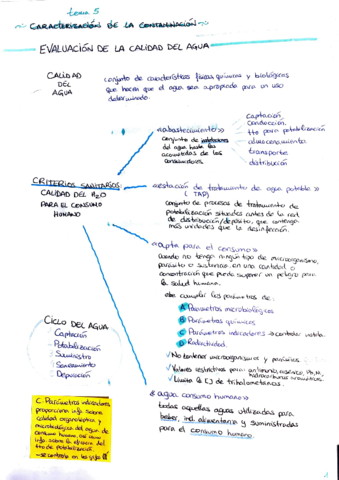 tema 5
~ CARACTERIZACIÓN DE LA CONTAMINACIÓN ~
EVALUACIÓN DE LA CALIDAD DEL AGUA
CALIDAD
DEL
AGUA
conjunto de características físicas químicas y biológicas
que hacen que el agua sea apropiado para un uso
determinado.
«abastecimiento»
conjunto de
del agua hasta las
acometidas de los
consumidores
captación
conducción
tto para potabilización
almacenamiento
transporte
distribución
CRITERIOS SANITARIOS
CALIDAD DEL H2O
PARA EL CONSUMO
HUMANO
«estación de tratamiento de agua potable»
(TAP)
conjunto de procesos de tratamiento de
potabilización situados antes de la red
de distribución/depósito, que contenga
más unidades que la desinfección.
«Apta para el consumo»
cuando no tengan ningún tipo de microorganismo,
parásito o sustancia, en una cantidad o
concentración que pueda suponer un peligro para
la salud humana.
debe cumplir los parámetros de:
A Parámetros microbiológicos
B Parámetros químicos
C Parámetros indicadores → control
D Radiactividad.
✓ No tener microorganismos y parásitos
✓ Valores restrictivos para: antimonio, arsénico, Pb, Ni,
hidrocarburos aromáticos.
✓ Limita la [] de trihalometanos.
CICLO DEL AGUA
Captación
Potabilización
Suministro
Saneamiento
Depuración
C. Parámetros indicadores
proporcionan info sobre
calidad organoléptica y
microbiológica del agua de
consumo humano, así como
info sobre la eficacia del
tto de potabilización.
«agua consumo humano»
todas aquellas aguas utilizadas para
beber, ind. alimentaria y suministradas
para el consumo humano.
1